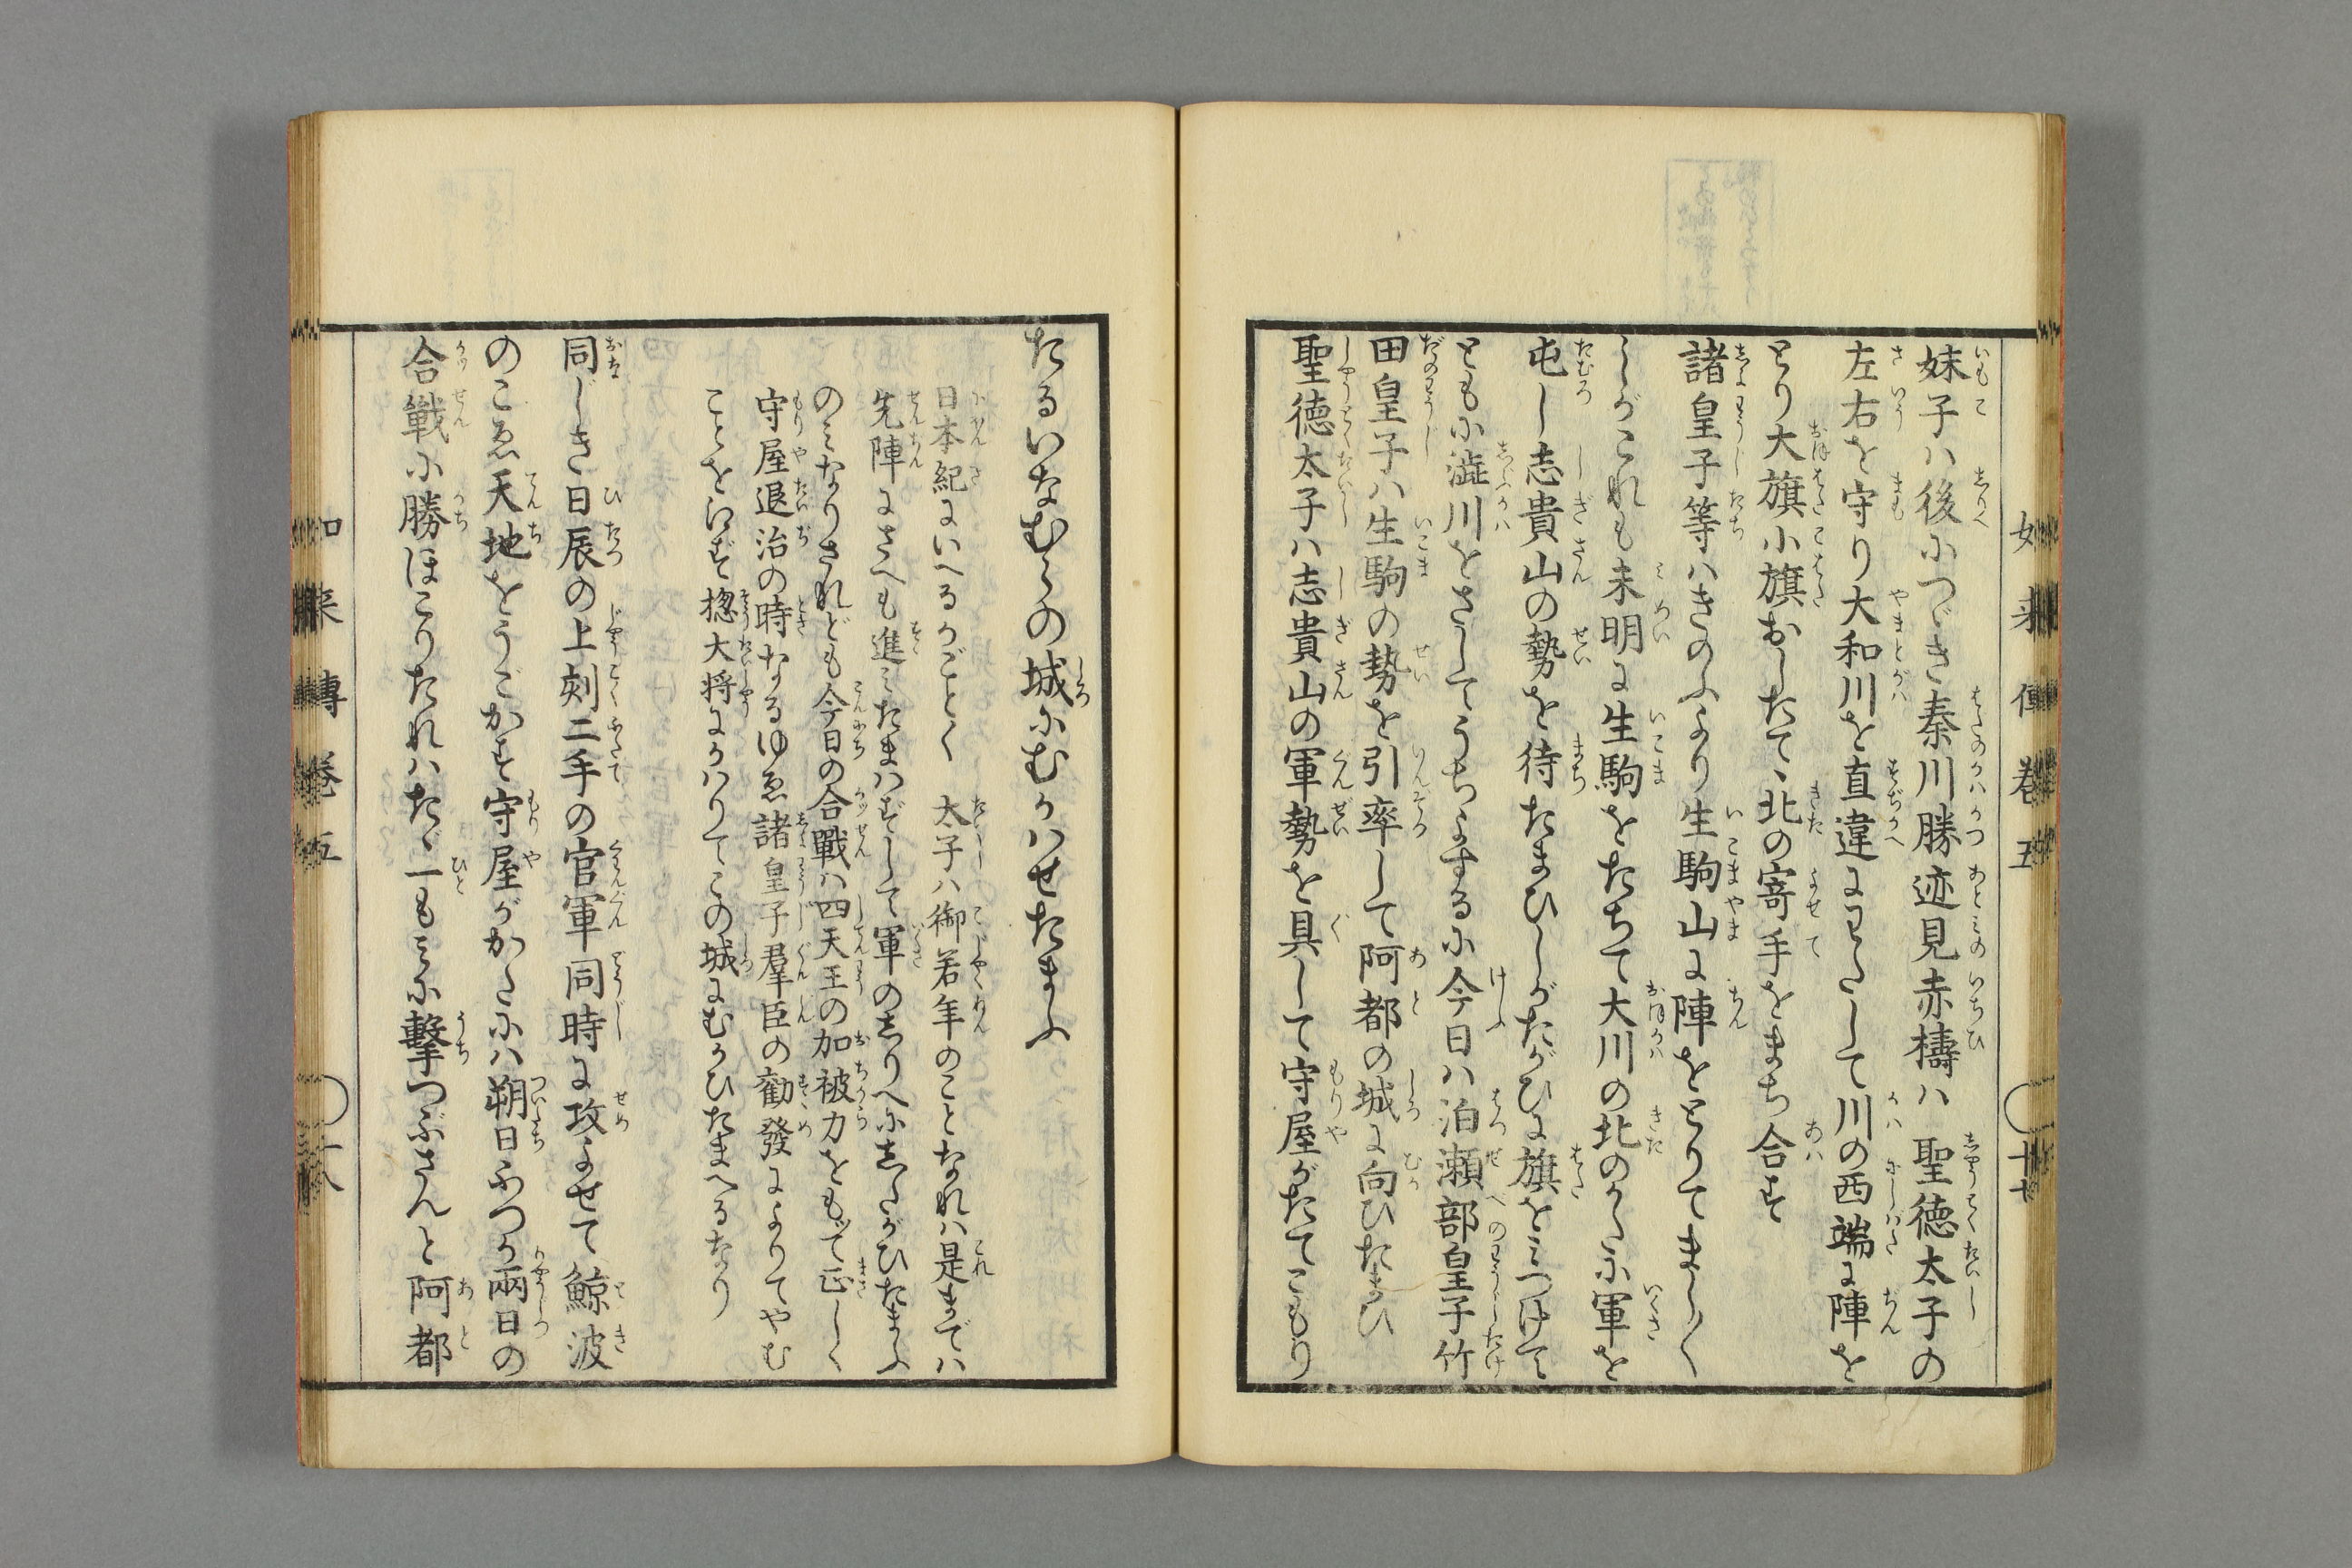 妹子ハ後につゞき秦川勝迹見赤檮ハ聖徳太子の
左右を守り大和川を直違にわたして川の西端に陣を
とり大旗小旗おしたて北の寄手をまち合す
諸皇子等ハきのふより生駒山に陣をとりてまし〱
しがこれも未明に生駒をたちて大川の北のかたに軍を
屯し志貴山の勢を待たまひしがたがひに旗をみつけて
ともに澁川をさしてうちよする小今日ハ泊瀬部皇子竹
田皇子ハ生駒の勢を引率して阿都の城に向ひたまひ
聖徳太子ハ志貴山の軍勢を具して守屋がたてこもり
如来傳巻五
十七
たるいなむらの城にむかハせたまふ
日本紀にいへるがごとく 太子ハ御若年のことなれハ是までハ
先陣にさへも進みたまハずして軍のしりへにしたがひたまふ
のミなりされども今日の合戰ハ四天王の加被力をもつて正しく
守屋退治の時なるゆゑ諸皇子羣臣の勧發によりてやむ
ことをえず惣大将にかハりてこの城にむかひたまへるなり
同じき日辰の上刻二手の官軍同時に攻よせて鯨波
のこゑ天地をうごかす守屋がかたにハ朔日ふつか兩日の
合戦に勝ほこりたれハたゞ一もみに擊つぶさんと阿都
如来傳巻五
十八